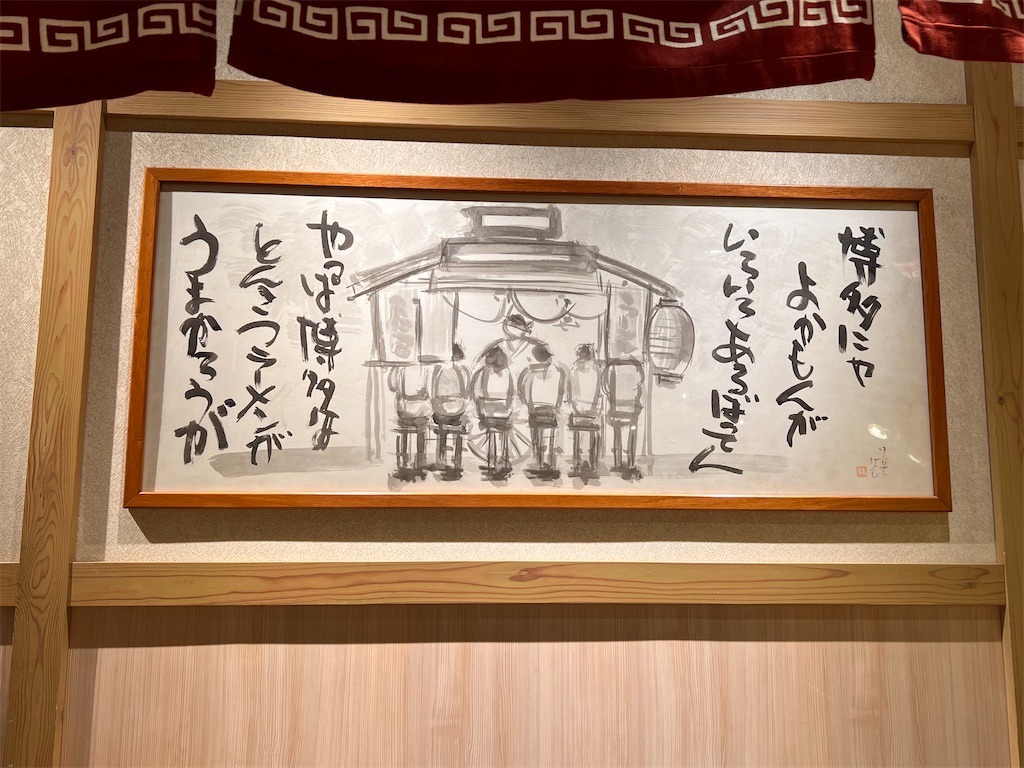 博多にゃ
よかもんが
いろいろあるばってん
やっぱ博多は
とんこつラーメンが
うまかろうが